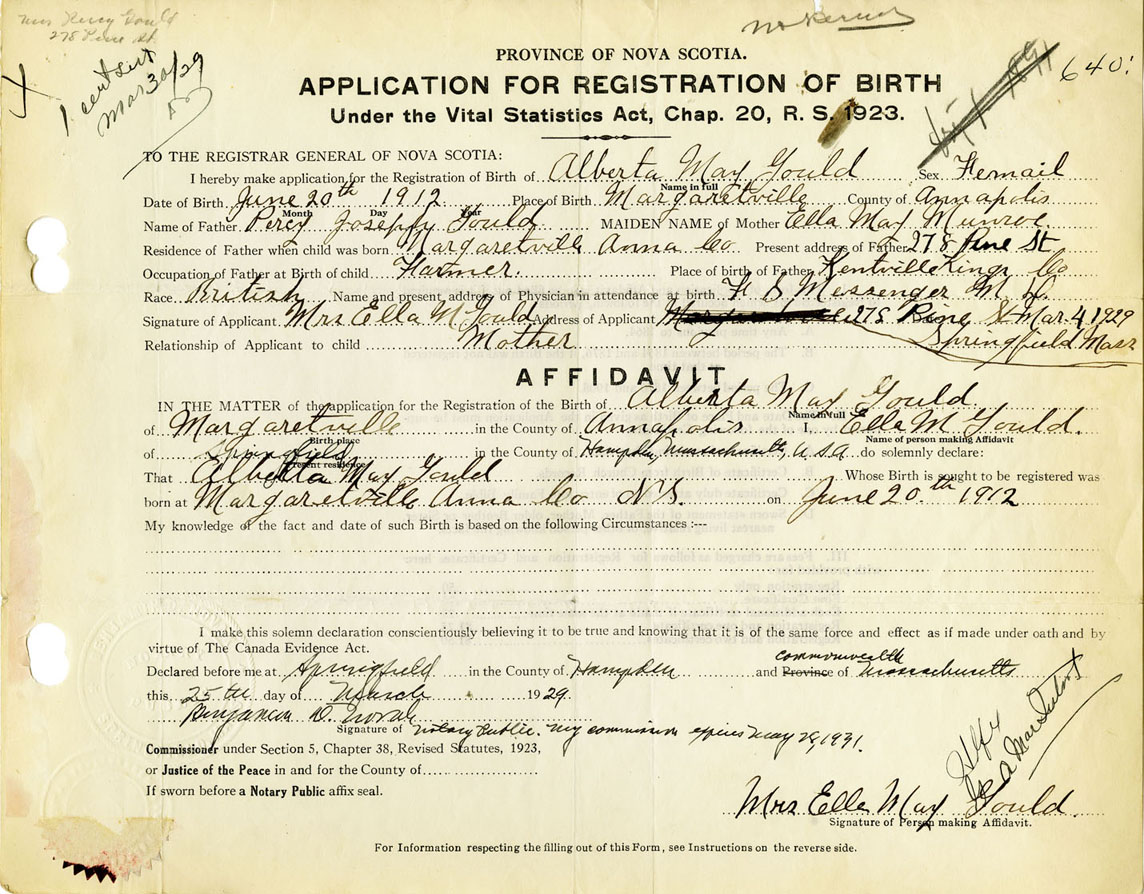 Mrs Percy Gould
278 Pine St
1 cert sent
Mar 30/29
640
PROVINCE OF NOVA SCOTIA.
APPLICATION FOR REGISTRATION OF BIRTH
Under the Vital Statistics Act, Chap. 20, R. S. 1923.
TO THE REGISTRAR GENERAL OF NOVA SCOTIA:
I hereby make application for the Registration of Birth of Alberta May Gould Sex Femail
Name in full
Date of Birth June 20th 1912 Place of Birth Margaretville County of Annapolis
Month Day Year
Name of Father Percy Joseph Gould MAIDEN NAME of Mother Ella May Munroe
Residence of Father when child was born Margaretville Anna Co Present address of Father 278 Pine St
Occupation of Father at Birth of child Farmer. Place of birth of Father Kentville Kings Co
Race British Name and present address of Physician in attendance at birth F S Messenger M D.
Signature of Applicant Mrs Ella M Gould Address of Applicant 278 Pine St Mar 4 1929
Relationship of Applicant to child Mother Springfield Mass
AFFIDAVIT
IN THE MATTER of the application for the Registration of the Birth of Alberta May Gould
Name in full
of Margaretville in the County of Annapolis I, Ella M Gould.
Birth place Name of person making Affidavit
of Springfield in the County of Hampden, Massachusetts, U.S.A. do solemnly declare:
Present residence
That Alberta May Gould Whose Birth is sought to be registered was
born at Margaretville Anna Co N.S. on June 20.th 1912
My knowledge of the fact and date of such Birth is based on the following Circumstances :---
I make this solemn declaration conscientiously believing it to be true and knowing that it is of the same force and effect as if made under oath and by
virtue of The Canada Evidence Act.
commonwealth
Declared before me at Springfield in the County of Hampden and Province of Massachusetts
this 25th day of March 1929.
Benjamin D. Novak
Signature of Notary Public. My commission expires May 28, 1931.
Commissioner under Section 5, Chapter 38, Revised Statutes, 1923,
or Justice of the Peace in and for the County of
If sworn before a Notary Public affix seal.
Mrs Ella May Gould.
Signature of Person making Affidavit.
For Information respecting the filling out of this Form, see Instructions on the reverse side.